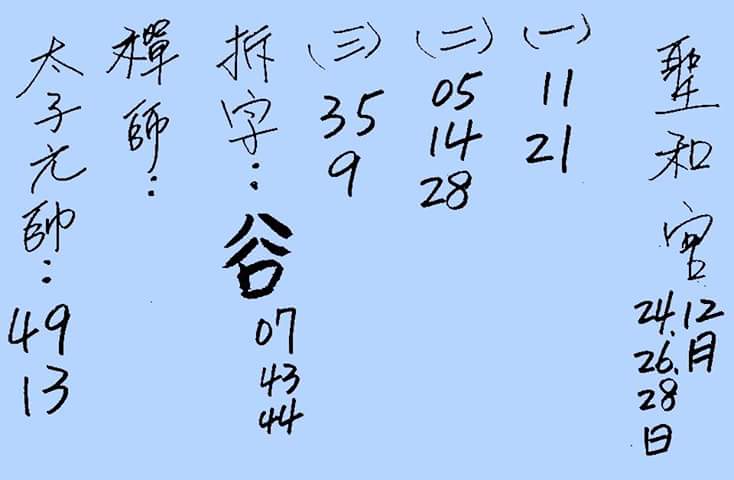 聖和宮
12月
24.26.28日
(一)
11
21
(二)
05
14
28
(三)
35
9
拆字：
谷
07
43
44
禪師：
太子元帥：
49
13